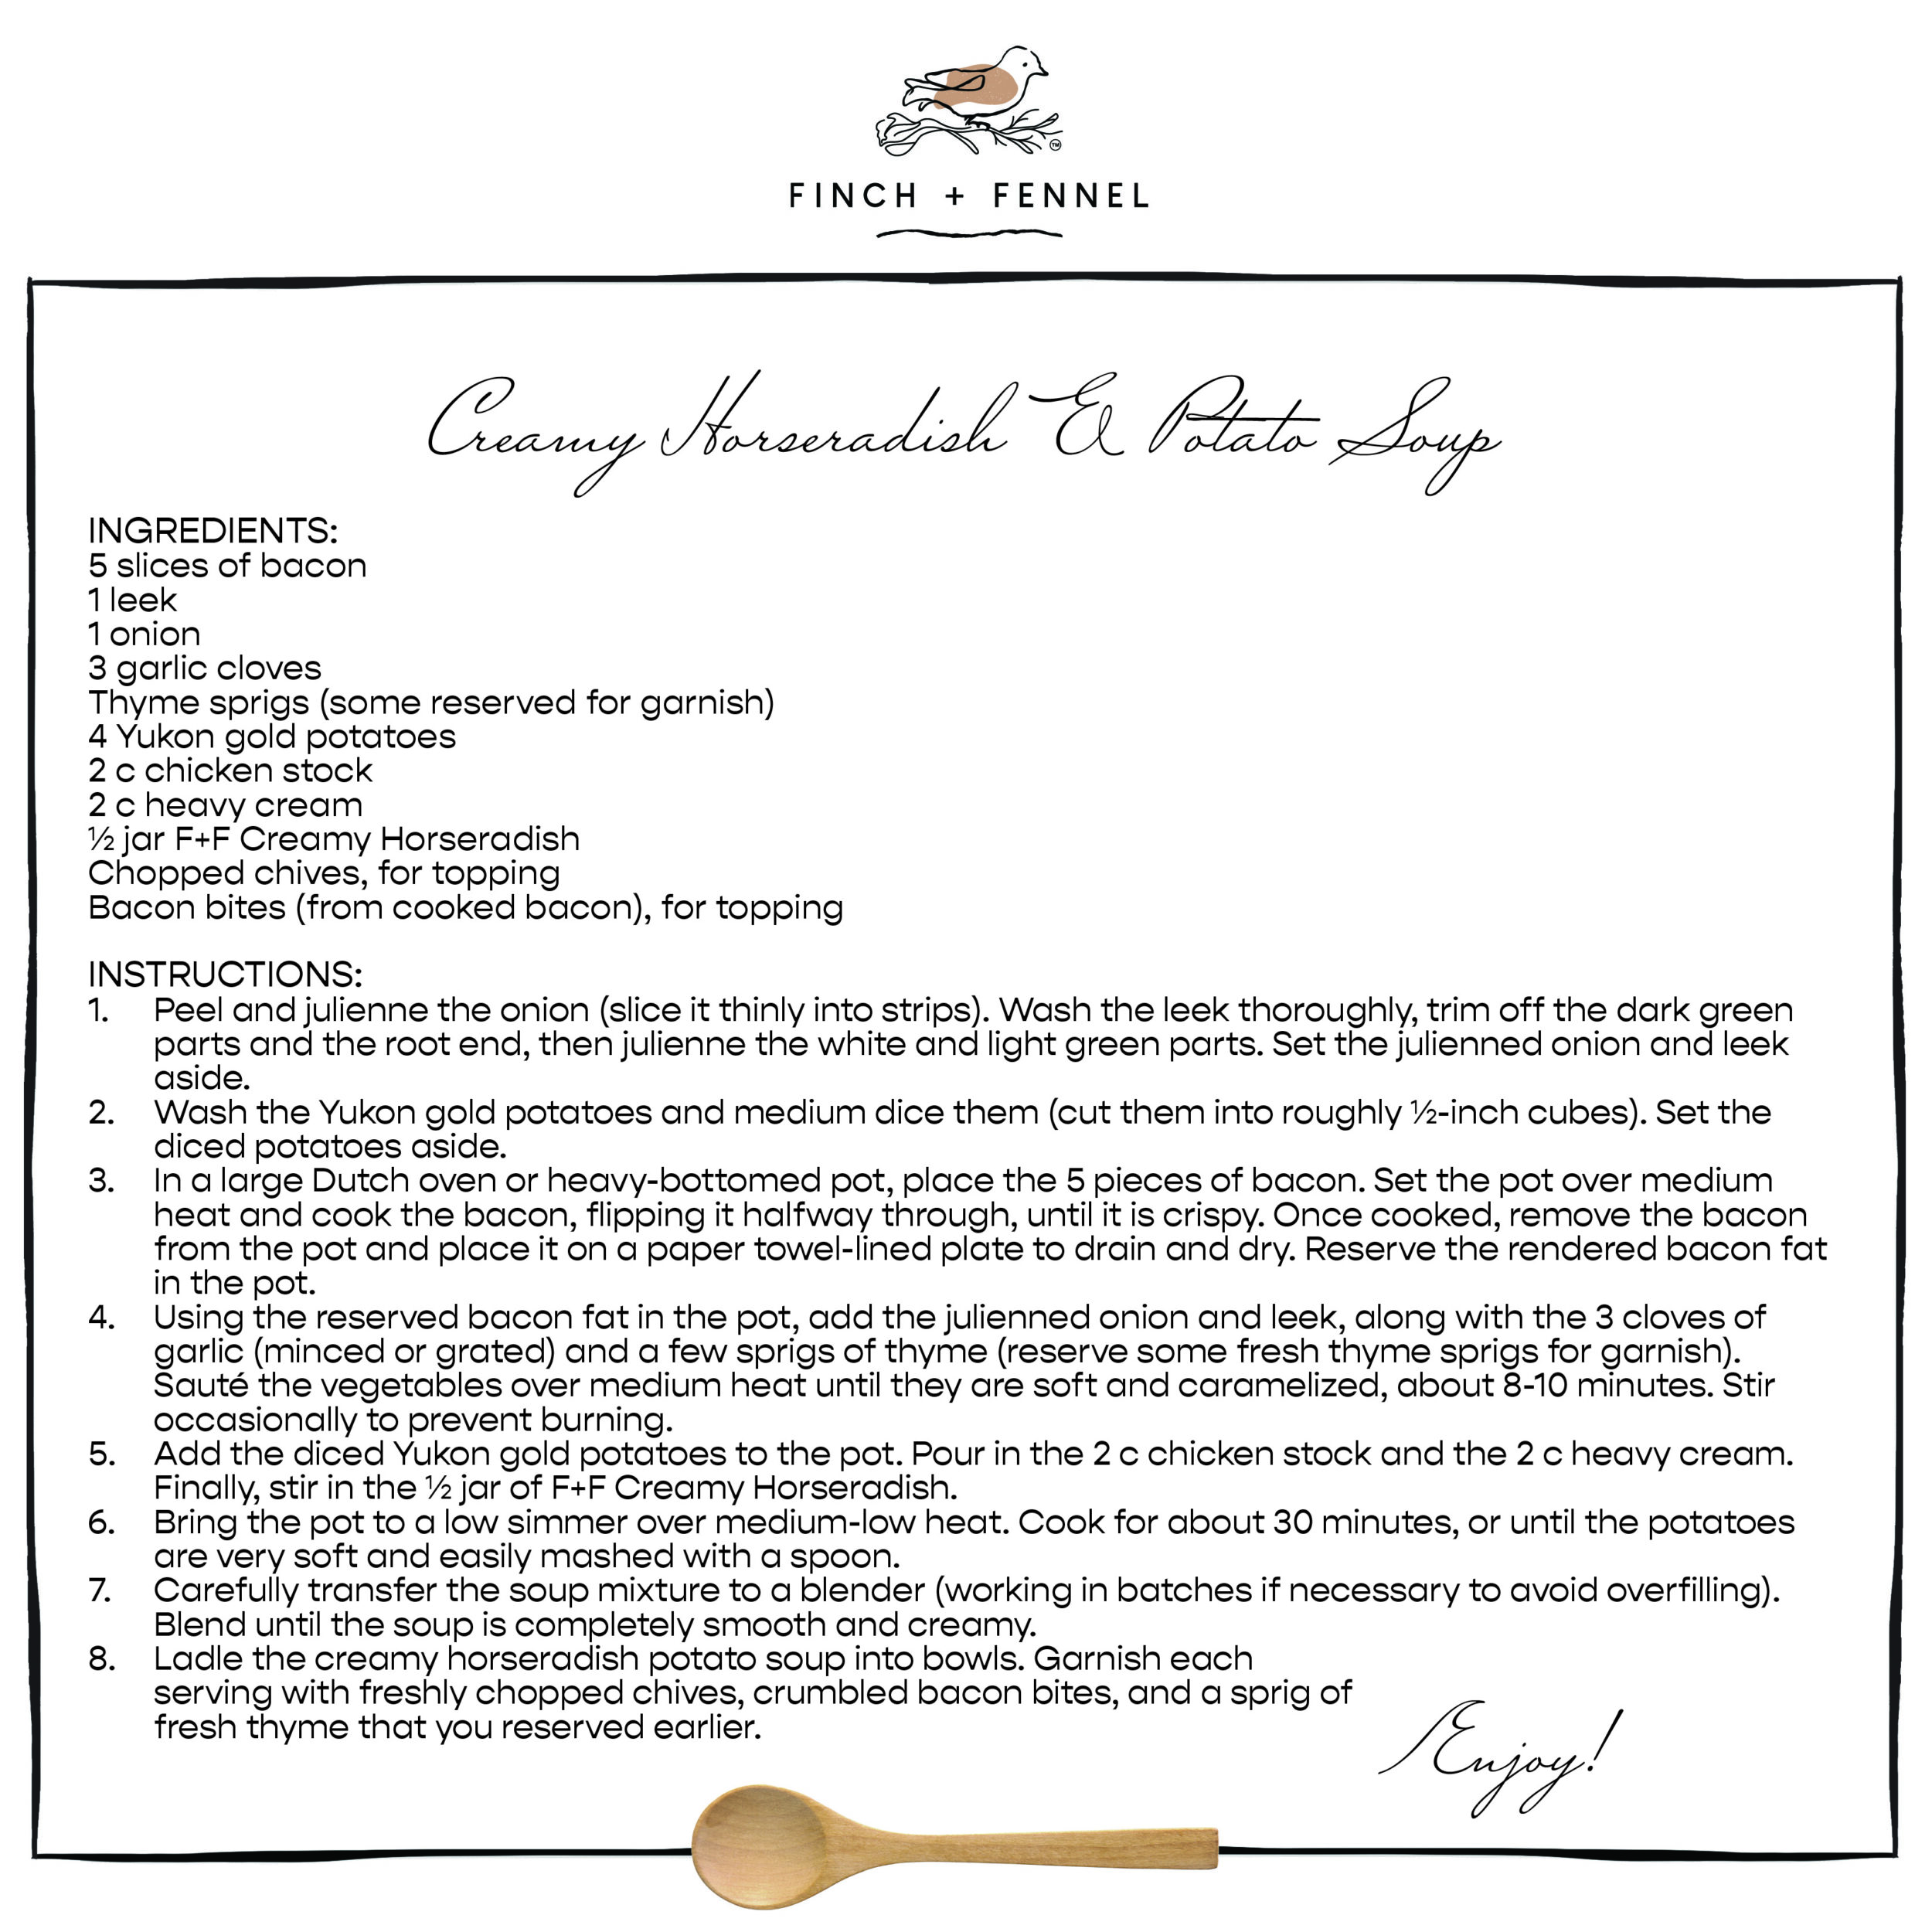 TM
FINCH + FENNEL
Creamy Horseradish & Potato Soup
INGREDIENTS:
5 slices of bacon
1 leek
1 onion
3 garlic cloves
Thyme sprigs (some reserved for garnish)
4 Yukon gold potatoes
2 c chicken stock
2 c heavy cream
½ jar F+F Creamy Horseradish
Chopped chives, for topping
Bacon bites (from cooked bacon), for topping
INSTRUCTIONS:
1. Peel and julienne the onion (slice it thinly into strips). Wash the leek thoroughly, trim off the dark green
parts and the root end, then julienne the white and light green parts. Set the julienned onion and leek
aside.
2. Wash the Yukon gold potatoes and medium dice them (cut them into roughly ½-inch cubes). Set the
diced potatoes aside.
3. In a large Dutch oven or heavy-bottomed pot, place the 5 pieces of bacon. Set the pot over medium
heat and cook the bacon, flipping it halfway through, until it is crispy. Once cooked, remove the bacon
from the pot and place it on a paper towel-lined plate to drain and dry. Reserve the rendered bacon fat
in the pot.
4. Using the reserved bacon fat in the pot, add the julienned onion and leek, along with the 3 cloves of
garlic (minced or grated) and a few sprigs of thyme (reserve some fresh thyme sprigs for garnish).
Sauté the vegetables over medium heat until they are soft and caramelized, about 8-10 minutes. Stir
occasionally to prevent burning.
5. Add the diced Yukon gold potatoes to the pot. Pour in the 2 c chicken stock and the 2 c heavy cream.
Finally, stir in the ½ jar of F+F Creamy Horseradish.
6. Bring the pot to a low simmer over medium-low heat. Cook for about 30 minutes, or until the potatoes
are very soft and easily mashed with a spoon.
7. Carefully transfer the soup mixture to a blender (working in batches if necessary to avoid overfilling).
Blend until the soup is completely smooth and creamy.
8. Ladle the creamy horseradish potato soup into bowls. Garnish each
serving with freshly chopped chives, crumbled bacon bites, and a sprig of
fresh thyme that you reserved earlier.
Enjoy!